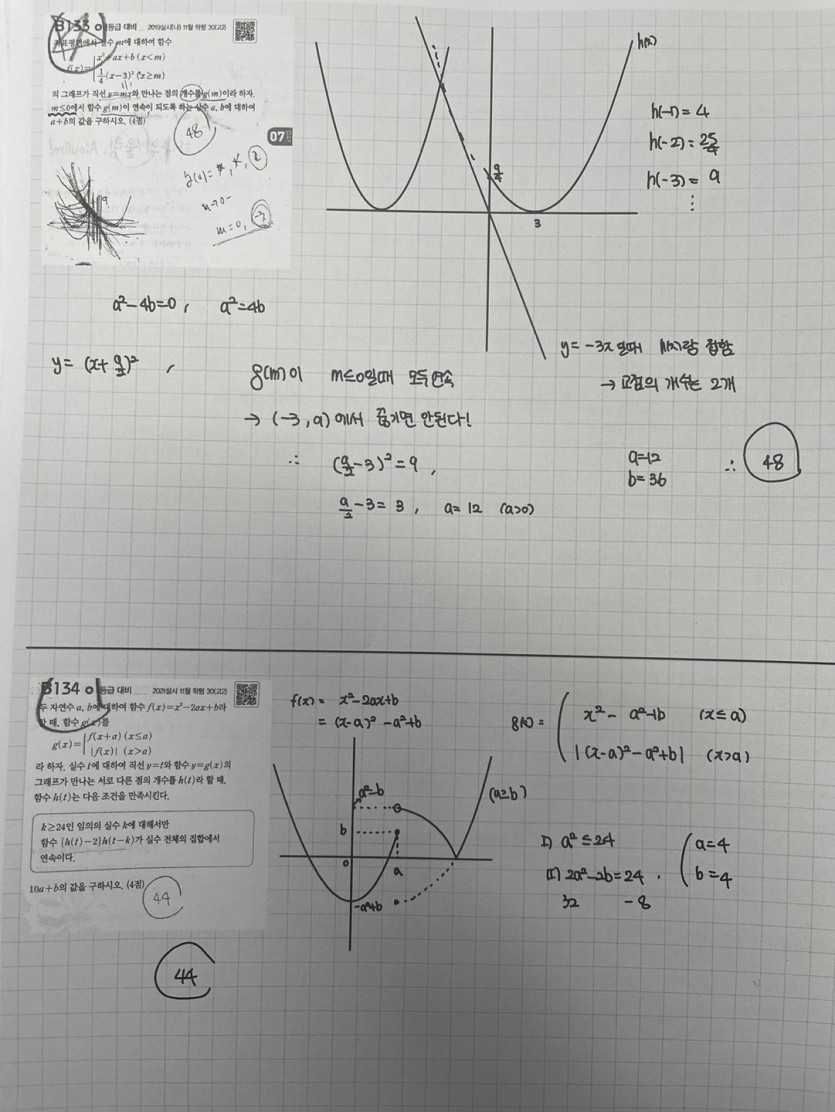 B133 등급 대비 2019실시(나) 11월 학평 30(고2)
좌표평면에서 실수 m에 대하여 함수
f(x)={x²+ax+b (x<m)
¼(x-3)² (x≥m)
의 그래프가 직선 y=mx와 만나는 점의 개수를 g(m)이라 하자.
m≤0에서 함수 g(m)이 연속이 되도록 하는 실수 a, b에 대하여
a+b의 값을 구하시오. (4점)
48
07
m→0-
m=0, -3
9
h(x)
9/4
3
h(-1)=4
h(-2)=25/4
h(-3)=9
⋮
a²-4b=0, a²=4b
y=-3x 일때 h(x)랑 접함
→ 교점의 개수는 2개
y=(x+a/2)²,
g(m)이 m≤0일때 모두 연속
→ (-3, 9)에서 끊기면 안된다!
∴ (a/2-3)²=9,
a/2-3=3, a=12 (a>0)
a=12
b=36
∴ 48
B134 등급 대비 2021실시 11월 학평 30(고2)
두 자연수 a, b에 대하여 함수 f(x)=x²-2ax+b라
할 때, 함수 g(x)를
g(x)={f(x+a) (x≤a)
|f(x)| (x>a)
라 하자. 실수 t에 대하여 직선 y=t와 함수 y=g(x)의
그래프가 만나는 서로 다른 점의 개수를 h(t)라 할 때,
함수 h(t)는 다음 조건을 만족시킨다.
k≥24인 임의의 실수 k에 대해서만
함수 {h(t)-2}h(t-k)가 실수 전체의 집합에서
연속이다.
10a+b의 값을 구하시오. (4점)
44
44
f(x)= x²-2ax+b
= (x-a)²-a²+b
g(x)= ( x²-a²+b (x≤a)
|(x-a)²-a²+b| (x>a)
a²-b
b
0
a
-a²+b
(a≥b)
I) a²≤24
II) 2a²-2b=24,
32 -8
a=4
b=4